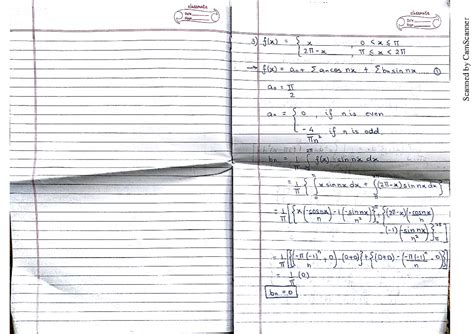 classmate
Date
Page
classmate
Date
Page
3) f(x) = { x , 0 < x ≤ π
2π-x , π ≤ x < 2π
→ f(x) = a₀ + Σ aₙ cos nx + Σ bₙ sin nx ... ①
a₀ = π/2
aₙ = { 0 , if n is even
-4/πn² if n is odd
bₙ = 1/π ∫ f(x) sin nx dx
= 1/π { ∫ x sin nx dx + ∫ (2π-x) sin nx dx }
= 1/π [ { x (-cos nx/n) - 1 (-sin nx/n²) } + { (2π-x) (-cos nx/n)
- (-1) (-sin nx/n²) } ]
= 1/π [ { (-π(-1)ⁿ/n + 0) - (0+0) } + { (0+0) - (-π(-1)ⁿ/n - 0) } ]
= 1/π (0)
bₙ = 0
Scanned by CamScanner